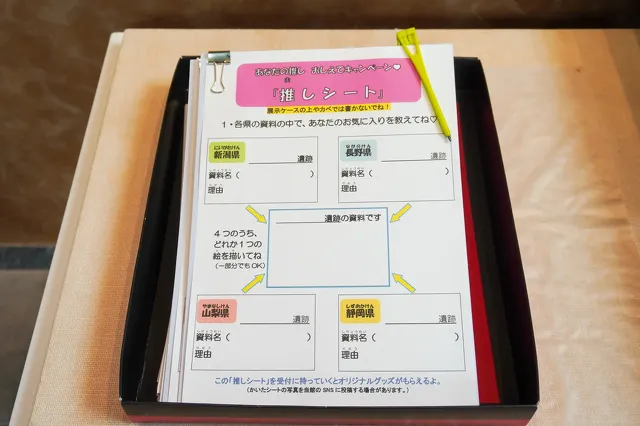 あなたの推し おしえてキャンペーン♡
『推しシート』
展示ケースの上やカベでは書かないでね!
1・各県の資料の中で、あなたのお気に入りを教えてね♡
にいがたけん
新潟県 ＿＿＿＿＿遺跡
資料名( )
理由
ながのけん
長野県 ＿＿＿＿＿遺跡
資料名( )
理由
＿＿＿＿＿遺跡の資料です
4つのうち、
どれか1つの
絵を描いてね
(一部分でもOK)
やまなしけん
山梨県 ＿＿＿＿＿遺跡
資料名( )
理由
しずおかけん
静岡県 ＿＿＿＿＿遺跡
資料名( )
理由
この「推しシート」を受付に持っていくとオリジナルグッズがもらえるよ。
(かいたシートの写真を当館の SNS に投稿する場合があります。)